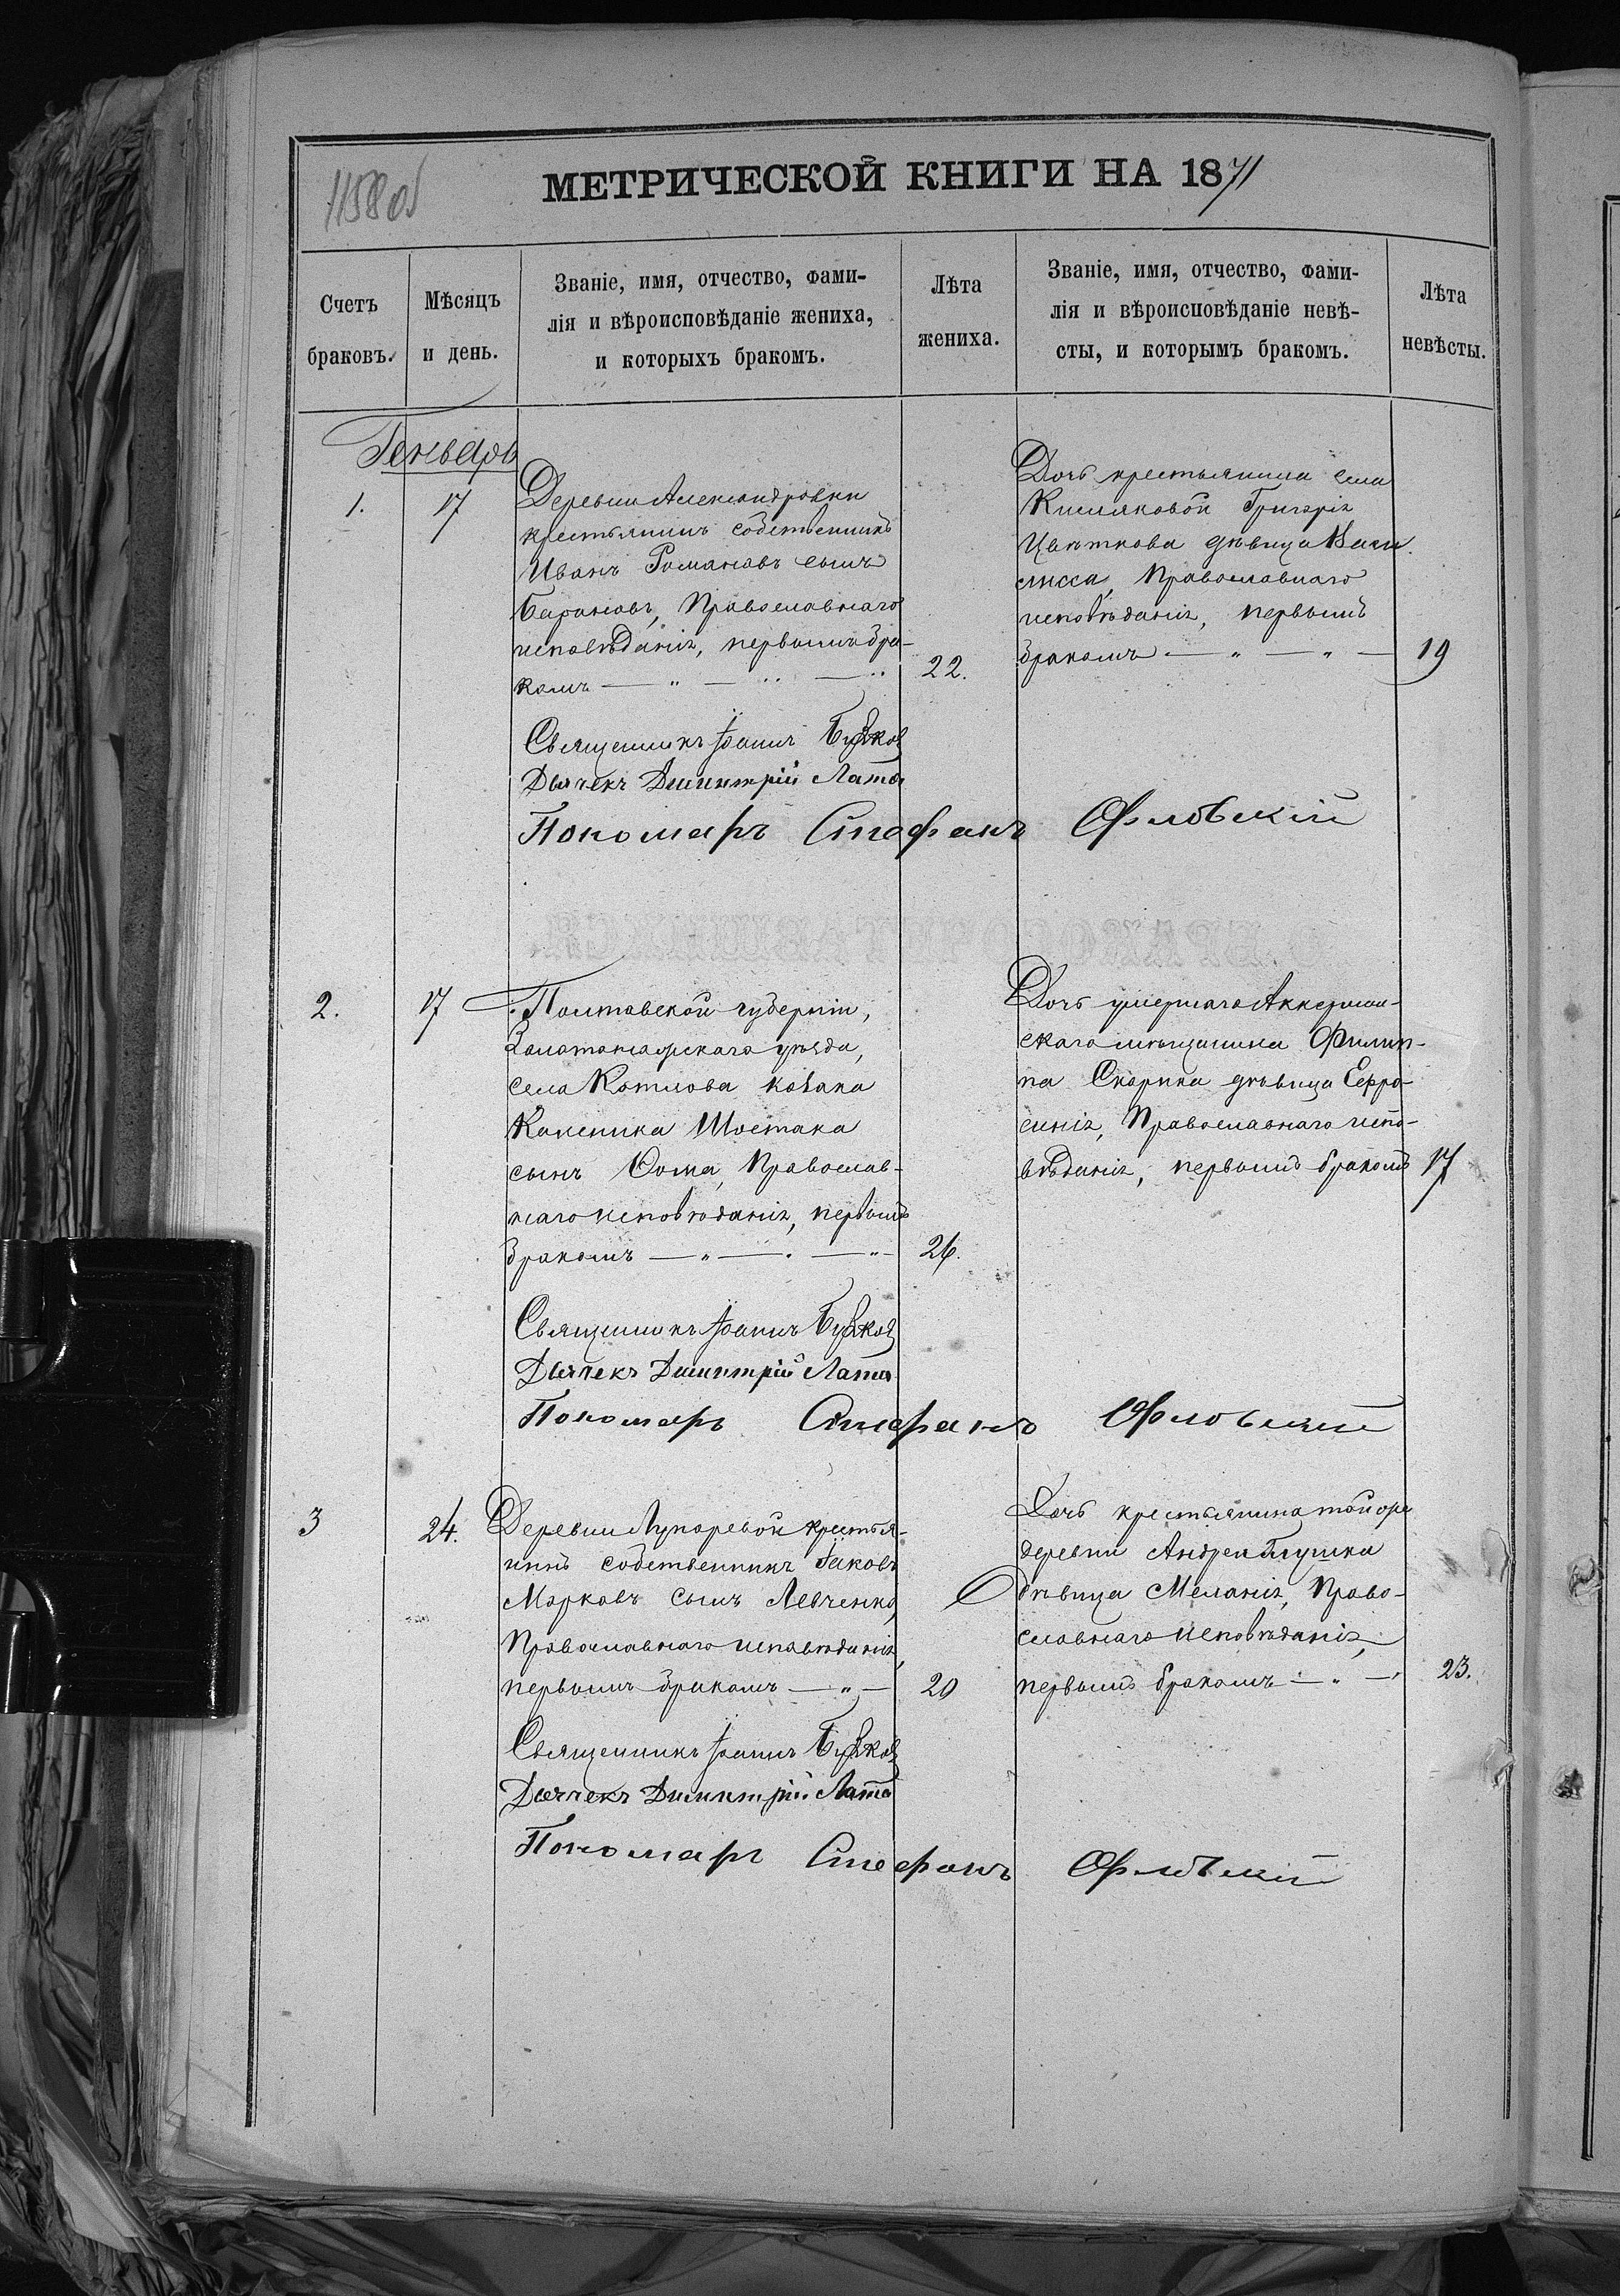 11580б
МЕТРИЧЕСКОЙ КНИГИ НА 1871
Счетъ
браковъ.
Мѣсяцъ
и день.
Званіе, имя, отчество, фами-
лія и вѣроисповѣданіе жениха,
и которыхъ бракомъ.
Лѣта
жениха.
Званіе, имя, отчество, фами-
лія и вѣроисповѣданіе невѣ-
сты, и которымъ бракомъ.
Лѣта
невѣсты.
Генварь
1.
17
Деревни Александровки
крестьянинъ собственникъ
Иванъ Романовъ сынъ
Барановъ, Православнаго
исповѣданія, первымъ бра-
комъ — " — " — "
22.
Дочь крестьянина села
Кисляковой Григорія
Цвѣткова дѣвица Васи-
лисса, Православнаго
исповѣданія, первымъ
бракомъ — " — " —
19
Священникъ Іоаннъ
Дьячекъ Димитрій Лата
Пономарь Стефанъ Орловскій
2.
17
Полтавской губерніи,
Золотоношскаго уѣзда,
села козака
Шостака
сынъ Ѳома, Православ-
наго исповѣданія, первымъ
бракомъ — " — " — " —
26.
Дочь умершаго Аккерман-
скаго мѣщанина Филип-
па Скорика дѣвица Евфро-
синія, Православнаго испо-
вѣданія, первымъ бракомъ
17
Священникъ Іоаннъ
Дьячекъ Димитрій Лата
Пономарь Стефанъ Орловскій
3
24.
Деревни Лупаревой крестья-
нинъ собственникъ Іаковъ
Марковъ сынъ Левченко,
Православнаго исповѣданія,
первымъ бракомъ — " —
20
Дочь крестьянина той же
деревни Андрея Глушка
дѣвица Меланія, Право-
славнаго исповѣданія,
первымъ бракомъ — " —
23.
Священникъ Іоаннъ
Дьячекъ Димитрій Лата
Пономарь Стефанъ Орловскій